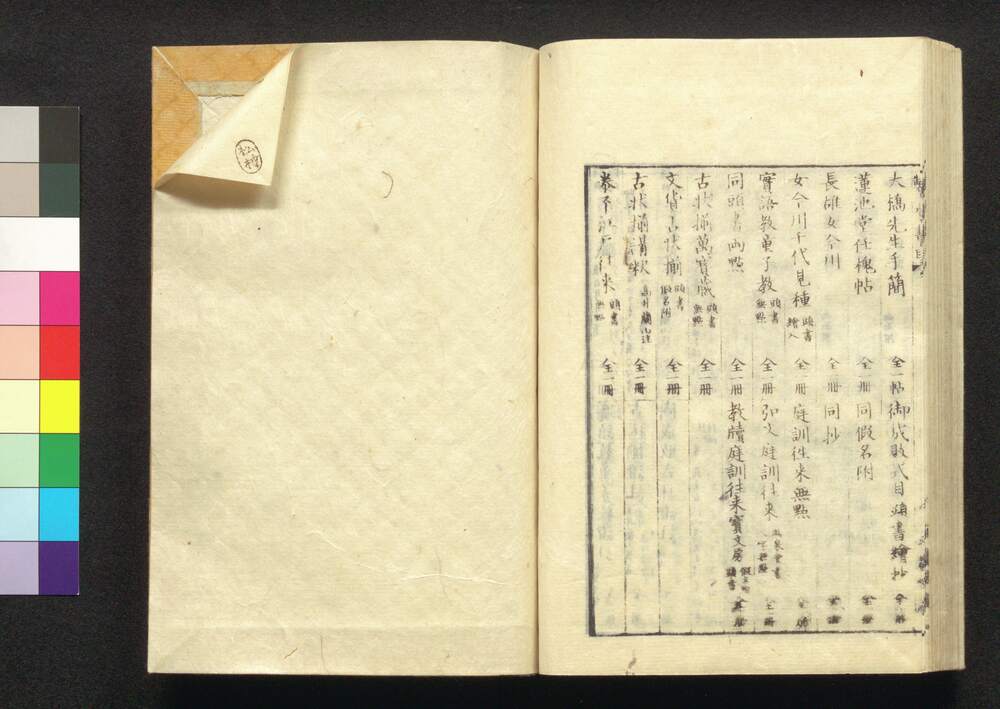 大橋先生手蘭 全一帖 御成敗式目 頭書繪抄 全一冊
蓮池堂任槐帖 全一冊 同假名附 全一冊
長雄女今川 全一冊 同抄
女今川千代見種 頭書繪入 全一冊 庭訓往来無點 全一冊
實語教童子教 頭書無點 全一冊 弘文庭訓往来 全一冊
同頭書両點 全一冊 教牘庭訓往来寳文庫 假名附頭書 全一冊
古状揃萬寳蔵 頭書無點 全一冊
文貨古状揃 頭書假名附 全一冊
古状揃講釈 高井蘭山注 全一冊
往来 頭書無點 全一冊